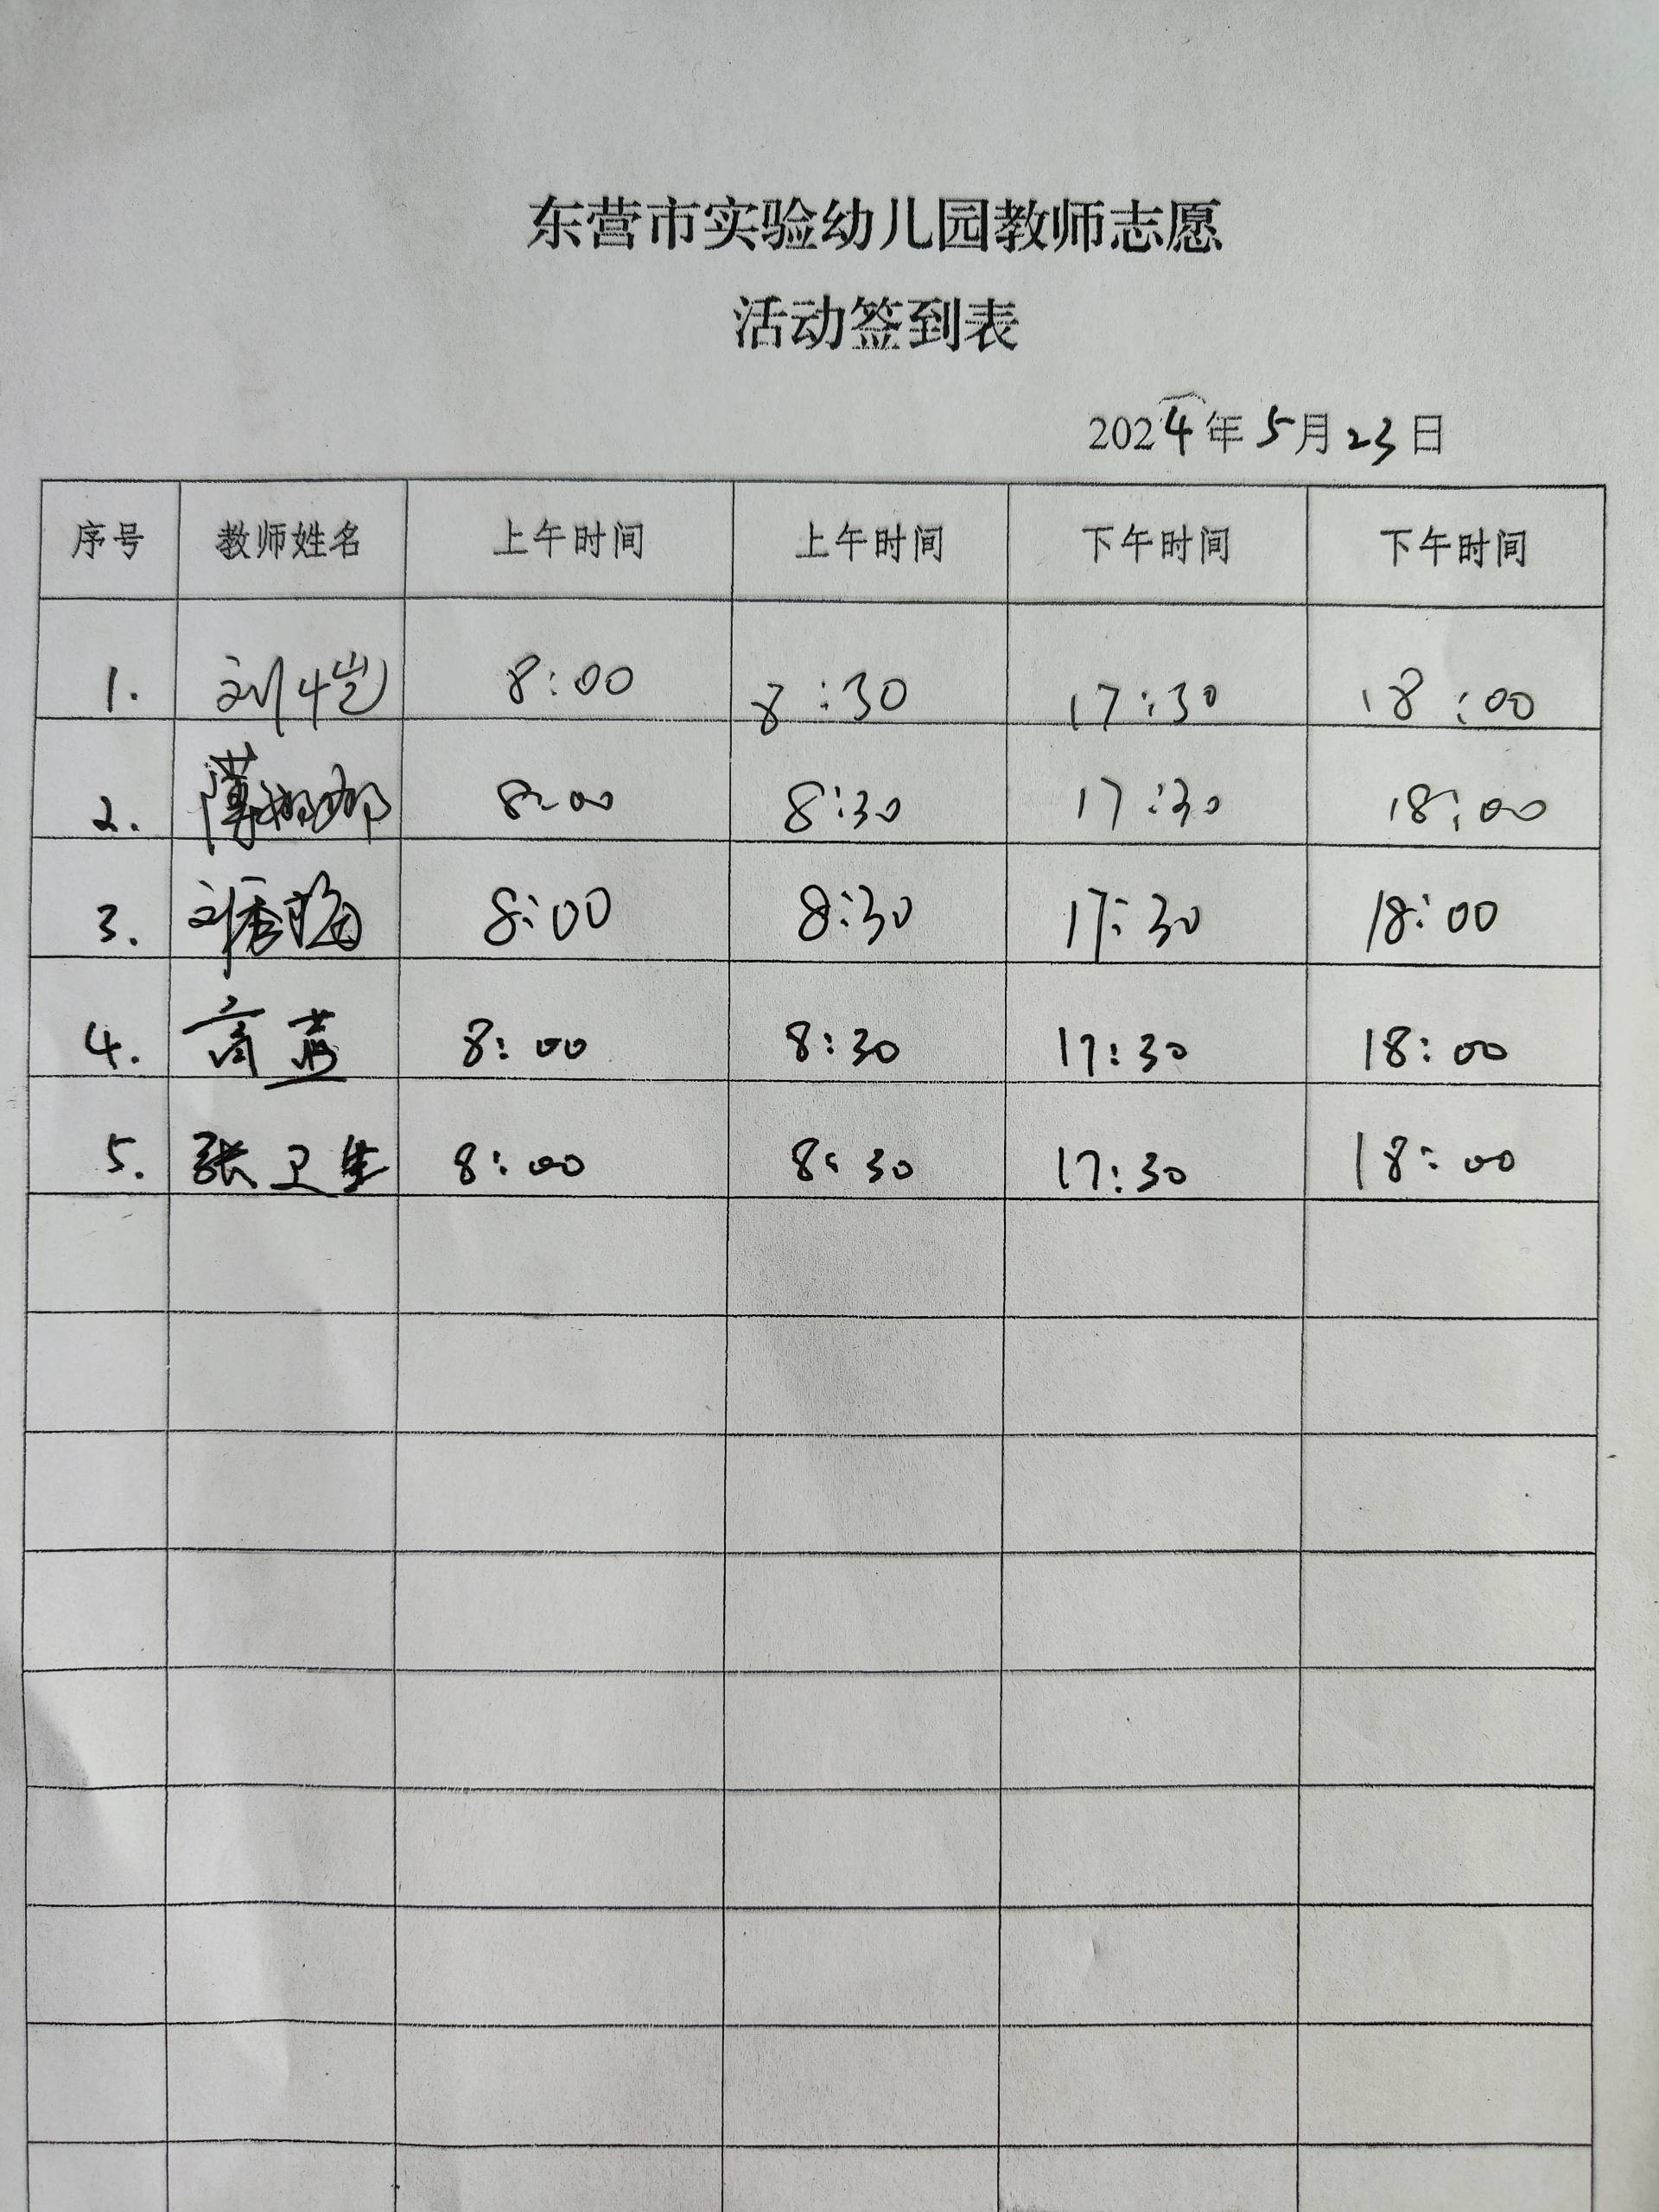 东营市实验幼儿园教师志愿
活动签到表
2024年5月23日
序号 教师姓名 上午时间 上午时间 下午时间 下午时间
1. 8:00 8:30 17:30 18:00
2. 8:00 8:30 17:30 18:00
3. 刘秀梅 8:00 8:30 17:30 18:00
4. 8:00 8:30 17:30 18:00
5. 张卫生 8:00 8:30 17:30 18:00